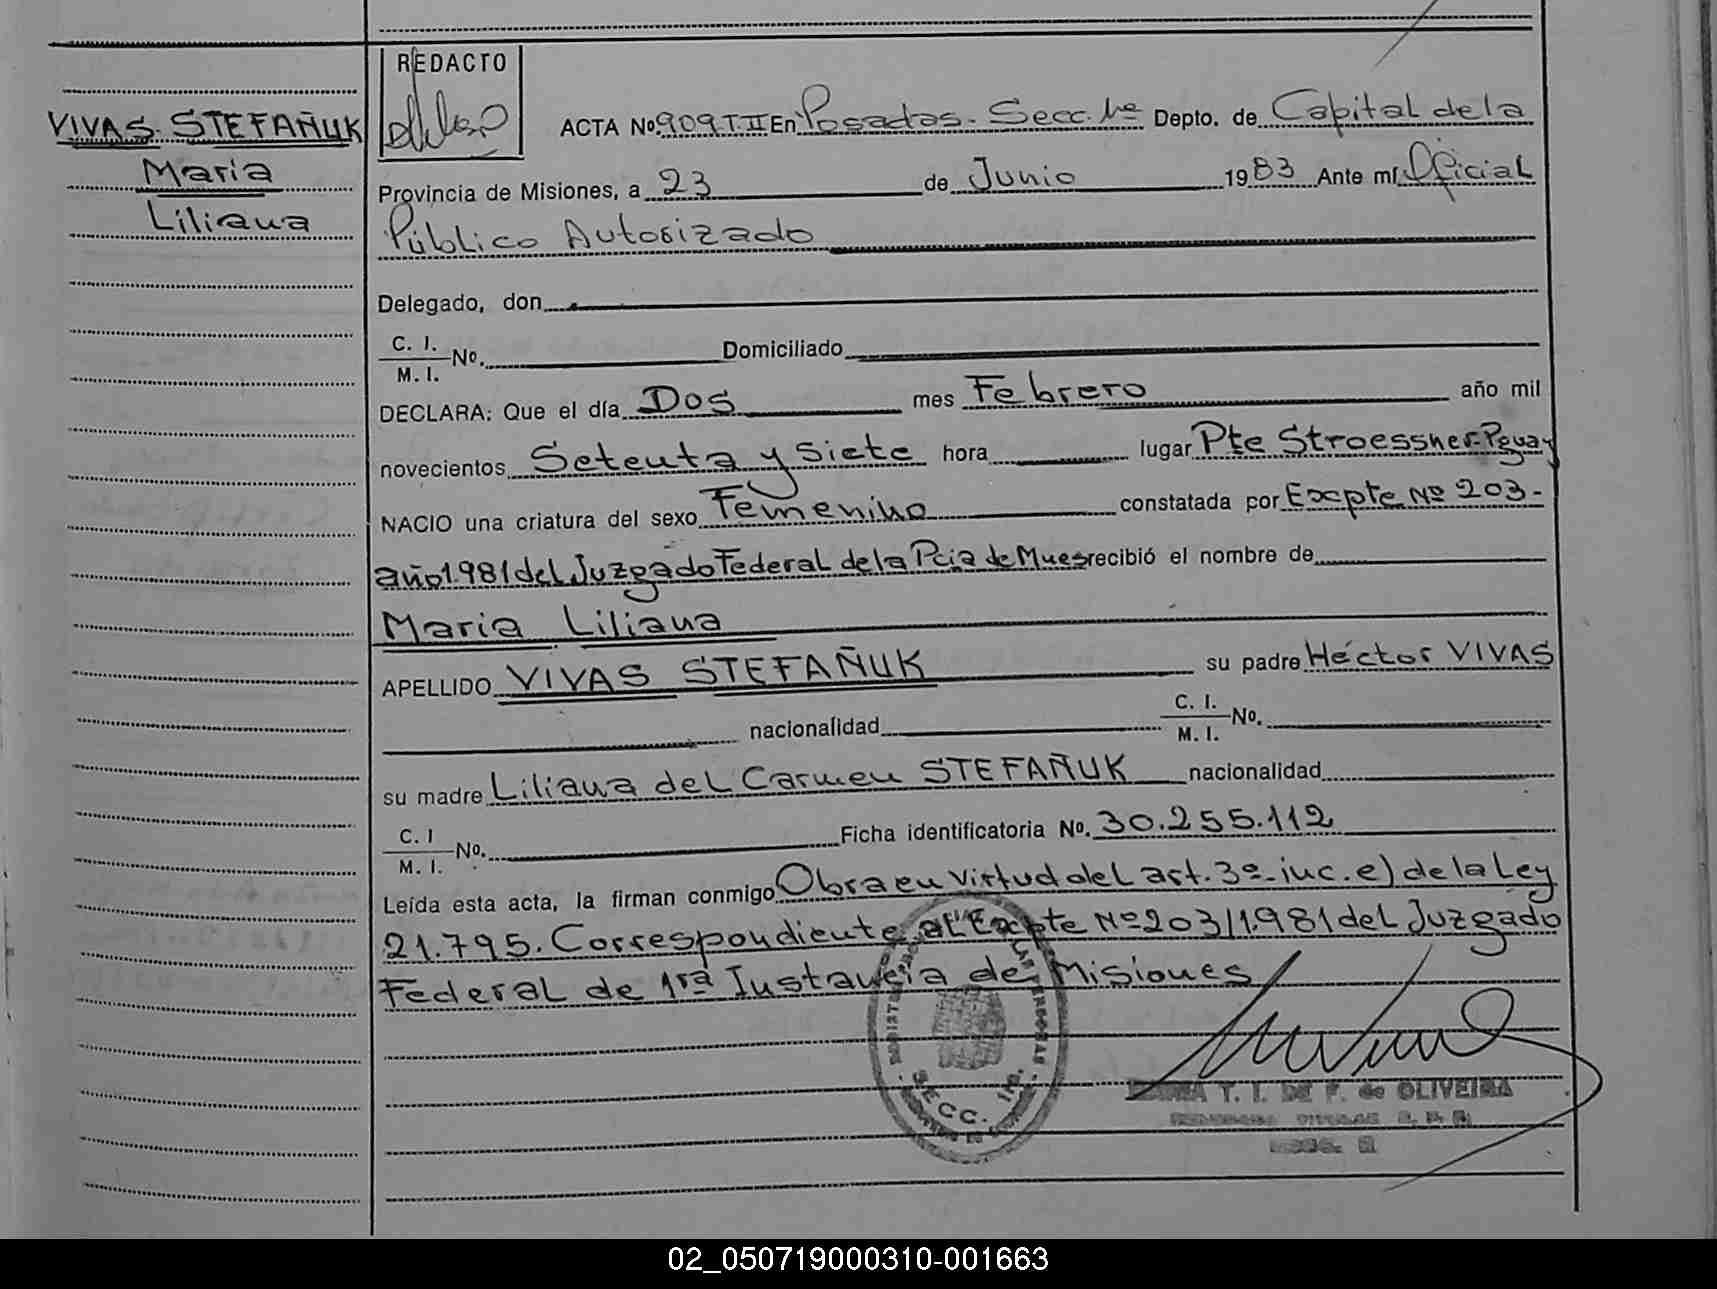 REDACTO
VIVAS STEFAÑUK
Maria
Liliana
ACTA No. 909 T.II En Posadas. Secc. 1ra Depto. de Capital de la
Provincia de Misiones, a 23 de Junio 1983 Ante mí Oficial
Público Autorizado
Delegado, don
C. I.
M. I. No. Domiciliado
DECLARA: Que el día Dos mes Febrero año mil
novecientos Setenta y Siete hora lugar Pte Stroessner-Pguay
NACIO una criatura del sexo Femenino constatada por Expte Nº 203-
año 1981 del Juzgado Federal de la Pcia de Mnes recibió el nombre de
Maria Liliana
APELLIDO VIVAS STEFAÑUK su padre Héctor VIVAS
nacionalidad C. I.
M. I. No.
su madre Liliana del Carmen STEFAÑUK nacionalidad
C. I
M. I. No. Ficha identificatoria No. 30.255.112
Leída esta acta, la firman conmigo Obra en virtud del art. 3º- inc. e) de la Ley
21.795. Correspondiente al Expte Nº 203/1981 del Juzgado
Federal de 1ra Instancia de Misiones
SECC. 1ra.
T. I. DE F. de OLIVEIRA
02_050719000310-001663